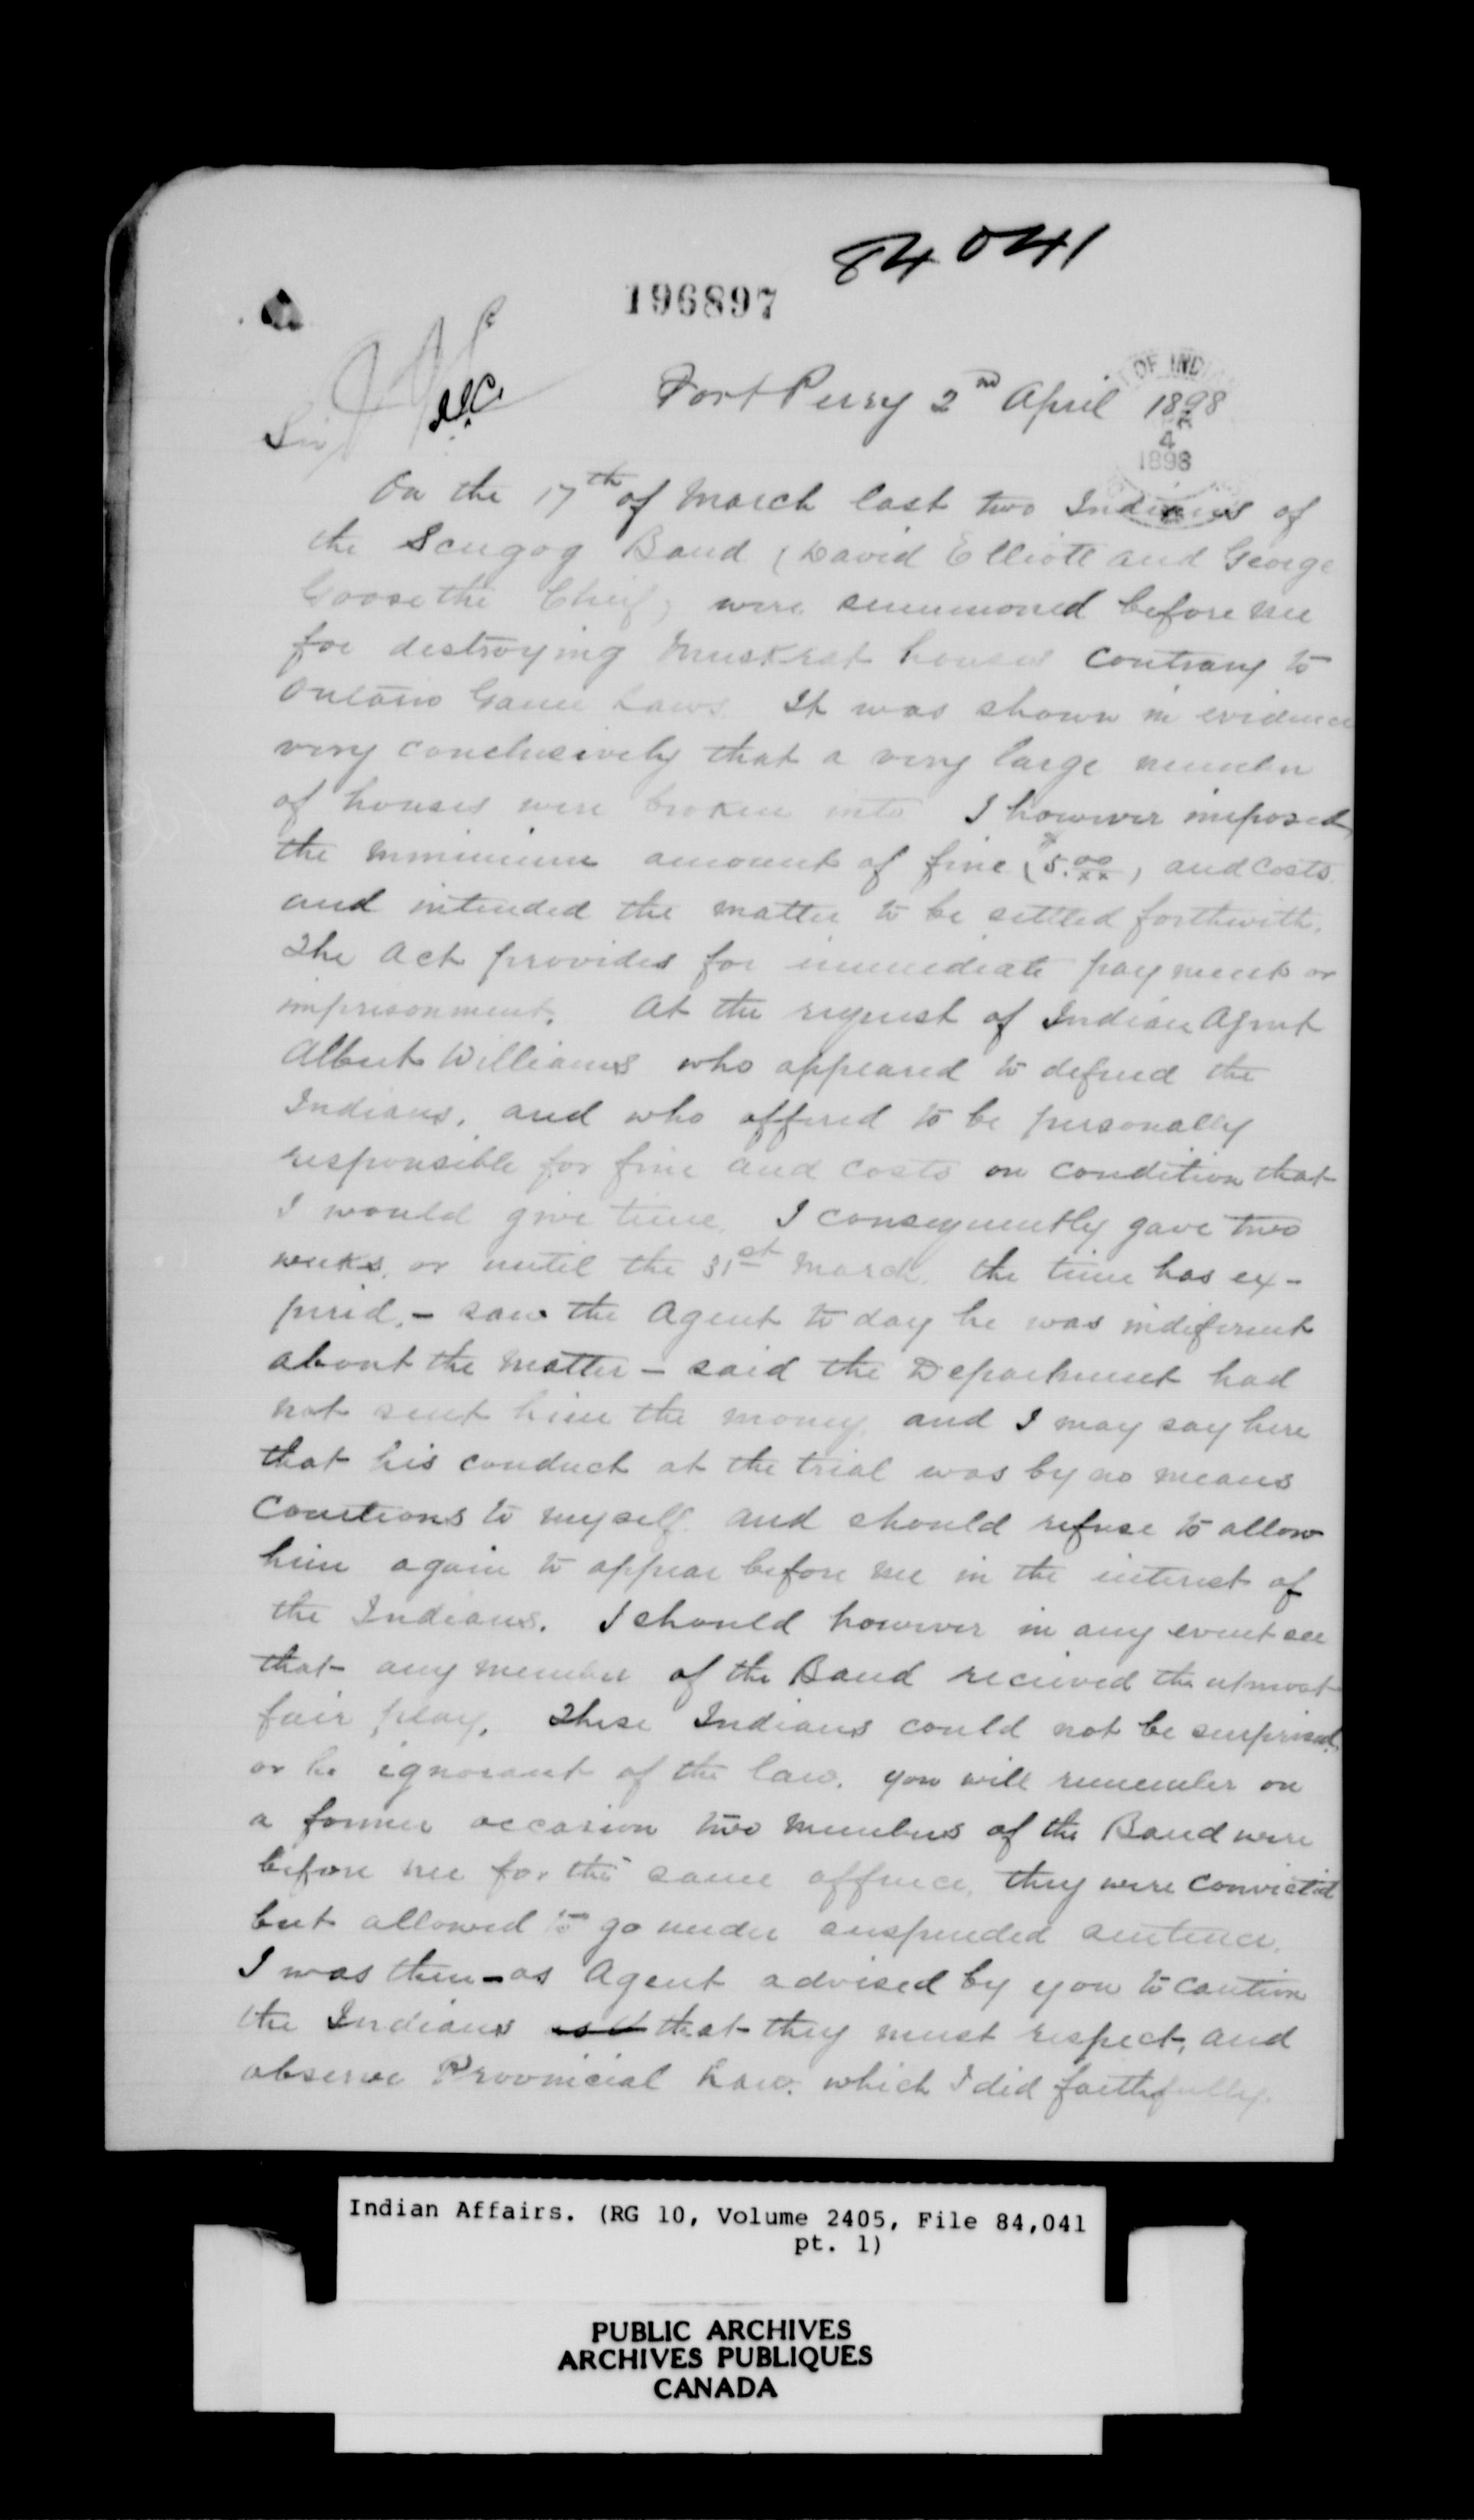 84041
196897
Port Perry 2nd April 1898
OF INDI
4
1898
Sir
On the 17th of March last two Indians of
the Scugog Band (David Elliott and George
Goose the Chief) were summoned before me
for destroying Muskrat houses contrary to
Ontario Game Laws. It was shown in evidence
very conclusively that a very large number
of houses were broken into I however imposed
the minimium amount of fine ($5.00/xx) and costs
and intended the matter to be settled forthwith.
The Act provides for immediate payment or
imprisonment. At the request of Indian Agent
Albert Williams who appeared to defend the
Indians, and who offered to be personally
responsible for fine and costs on condition that
I would give time. I consequently gave two
weeks, or until the 31st March. the time has ex-
pired, - saw the Agent to day he was indiferent
about the matter - said the Department had
not sent him the money, and I may say here
that his conduct at the trial was by no means
Courteous to myself. and should refuse to allow
him again to appear before me in the interest of
the Indians. I should however in any event see
that any member of the Band recieved the utmost
fair play. These Indians could not be surprised,
or be ignorant of the law. you will remember on
a former occasion two members of the Band were
before me for the same offence, they were convicted
but allowed to go under suspended sentence.
I was then - as Agent advised by you to caution
the Indians that they must respect, and
observe Provincial Law. which I did faithfully.
Indian Affairs. (RG 10, Volume 2405, File 84,041
pt. 1)
PUBLIC ARCHIVES
ARCHIVES PUBLIQUES
CANADA